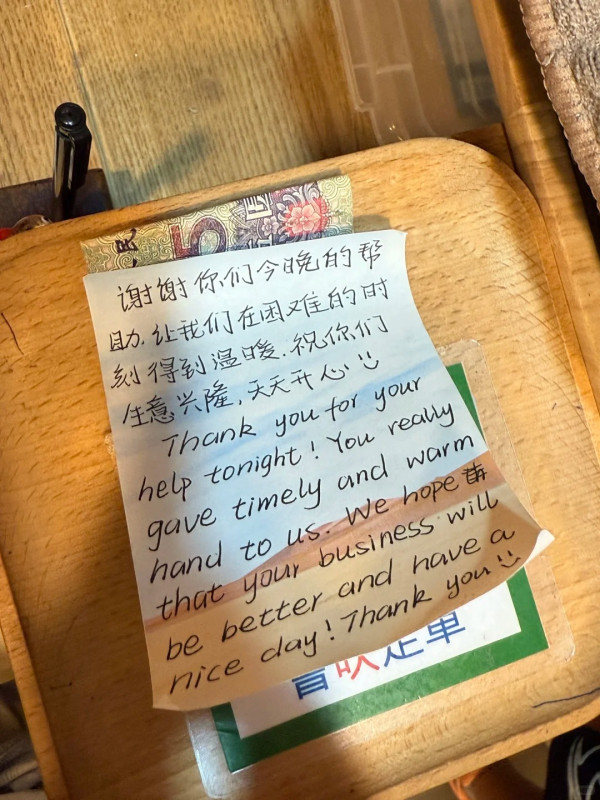 5
谢谢你们今晚的帮
助.让我们在困难的时
刻得到温暖.祝你们
生意兴隆,天天开心
Thank you for your
help tonight! You really
gave timely and warm
hand to us. We hope
that your business will
be better and have a
nice day! Thank you
单